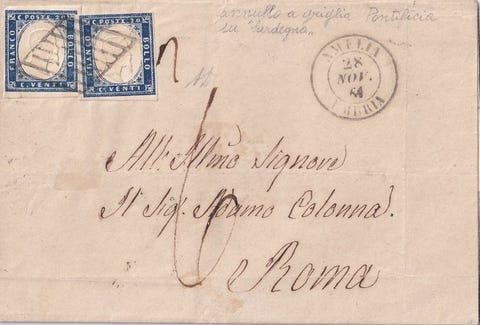 C. POSTE 20
FRANCO
BOLLO
C. VENTI
C. POSTE 20
FRANCO
BOLLO
C. VENTI
annullo a griglia Pontificia
su "Sardegna"
AMELIA
28
NOV.
61
UMBRIA
All' Illmo Signore
Il Sig. Adamo Colonna.
Roma